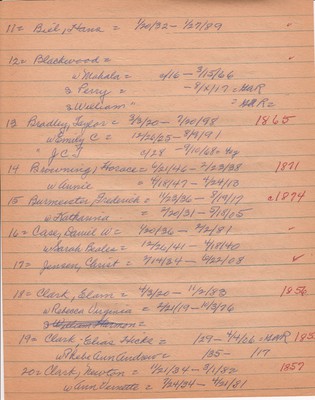 11= Biel, Hans = 1/20/32 - 1/27/89
12= Blackwood =
w Mahala = 2/16 - 3/15/66
s Perry = - 8/8/17 = MAR
s William " = MAR =
13 Bradley, Taylor = 3/3/20 - 7/20/98 1865
w Emily C = 12/26/25 - 8/9/91
" J.C.T 2/28 - 9/10/68
14 Browning, Horace = 6/21/46 - 2/23/38 1871
w Annie = 9/18/47 - 4/24/13
15 Burmester, Frederick = 11/23/36 - 7/19/17 c1874
w Katharina = 2/20/31 - 9/19/05
16= Case, Daniel W = 1/20/36 - 8/2/81
w Sarah = 12/26/41 - 4/18/40
17= Jensen, Christ = 9/19/34 - 6/22/08
18= Clark, Elam = 4/3/20 - 11/2/83 1856
w Rebecca Virginia = 2/21/19 - 11/3/76
19= Clark, Elias Hicks = 1/29 - 4/4/06 = MAR 185
w Phebe Ann Andrew = 1/35 - 1/17
20= Clark, Newton = 4/21/34 - 3/1/82 1857
w Ann Vernette = 9/24/34 - 4/20/81